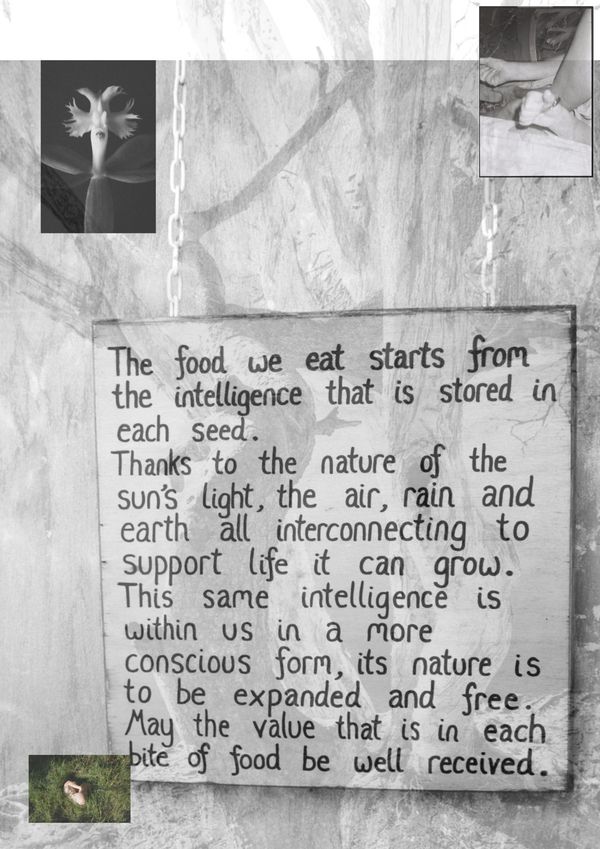 The food we eat starts from
the intelligence that is stored in
each seed.
Thanks to the nature of the
sun's light, the air, rain and
earth all interconnecting to
support life it can grow.
This same intelligence is
within us in a more
conscious form, its nature is
to be expanded and free.
May the value that is in each
bite of food be well received.